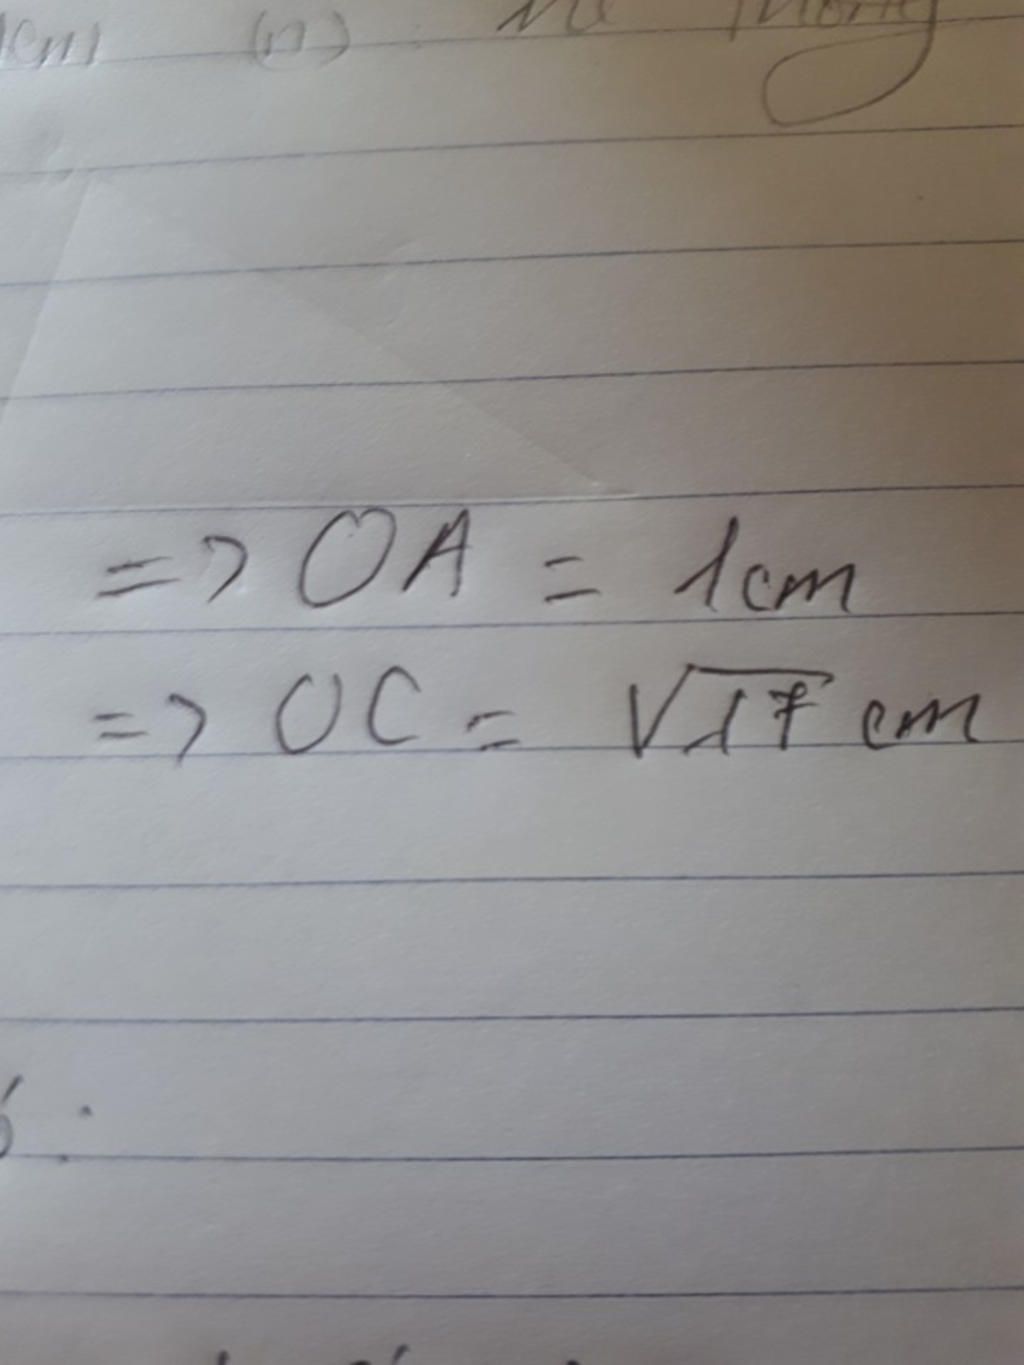 1cm (n)
=> OA = 1cm
=> OC = √17 cm